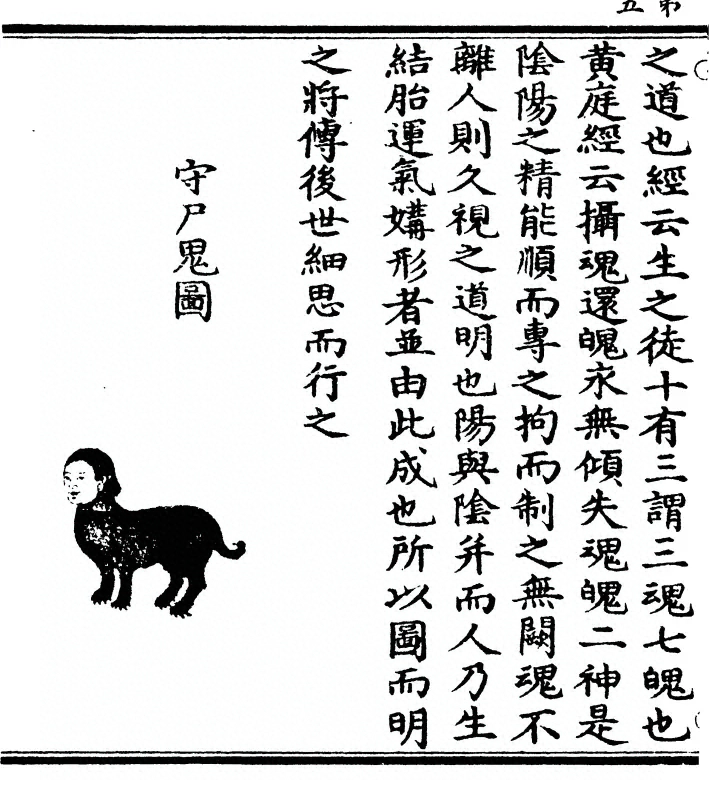 第五
之道也經云生之徒十有三謂三魂七魄也
黄庭經云攝魂還魄永無傾失魂魄二神是
陰陽之精能順而專之拘而制之無闕魂不
離人則久視之道明也陽與陰并而人乃生
結胎運氣媾形者並由此成也所以圖而明
之將傳後世細思而行之
守尸鬼圖